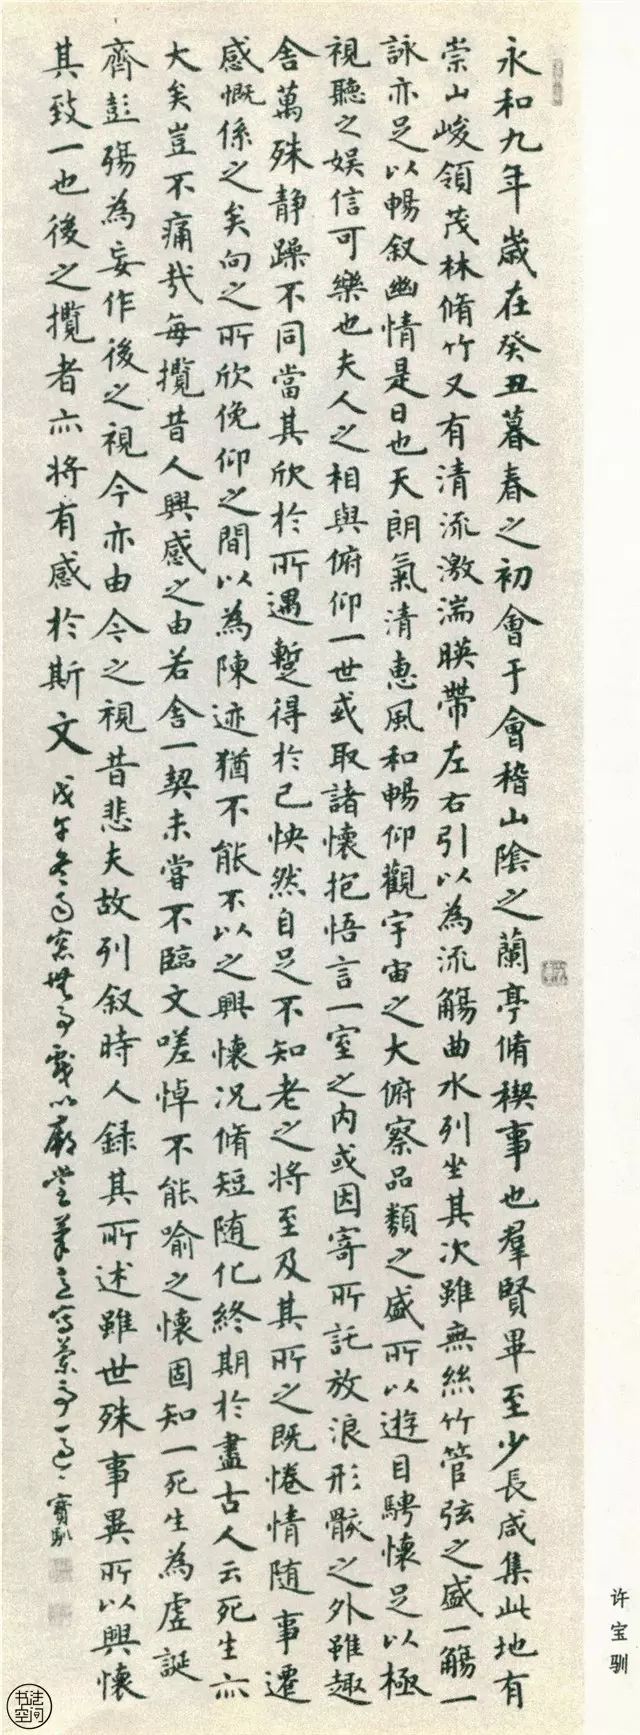 永和九年歲在癸丑暮春之初會于會稽山陰之蘭亭脩稧事也羣賢畢至少長咸集此地有
崇山峻領茂林脩竹又有清流激湍暎帶左右引以為流觴曲水列坐其次雖無絲竹管弦之盛一觴一
詠亦足以暢叙幽情是日也天朗氣清惠風和暢仰觀宇宙之大俯察品類之盛所以遊目騁懷足以極
視聽之娱信可樂也夫人之相與俯仰一世或取諸懷抱悟言一室之内或因寄所託放浪形骸之外雖趣
舍萬殊静躁不同當其欣於所遇蹔得於己怏然自足不知老之将至及其所之既惓情随事遷
感慨係之矣向之所欣俛仰之間以為陳迹猶不能不以之興懷况脩短随化終期於盡古人云死生亦
大矣豈不痛哉每攬昔人興感之由若合一契未嘗不臨文嗟悼不能喻之懷固知一死生為虚誕
齊彭殤為妄作後之視今亦由今之視昔悲夫故列叙時人錄其所述雖世殊事異所以興懷
其致一也後之攬者亦将有感於斯文
戊午冬日窓無事戲以廟堂筆意寫蘭亭一過 寶馴
许宝驯
书法空间